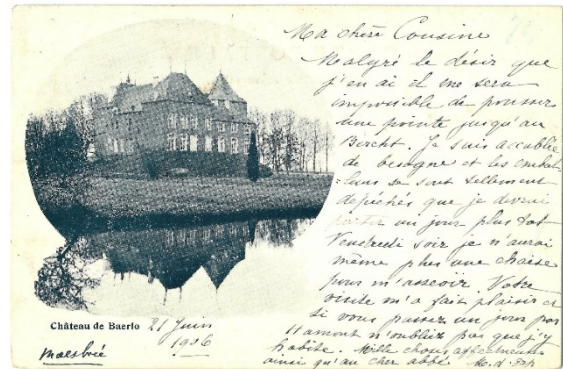 Ma chère Cousine
Malgré le désir que
j'en ai il me sera
impossible de pousser
une pointe jusqu'au
Bircht. Je suis accablée
de besogne et les embal
=leurs se sont tellement
dépêchés que je devrai
partir un jour plus tôt
Vendredi soir je n'aurai
même plus une chaise
pour m'asseoir. Votre
visite m'a fait plaisir et
si vous passez un jour par
n'oubliez pas que j'y
habite. Mille choses affectueuses
ainsi qu'au cher abbé
Château de Baerlo 21 Juin
1906